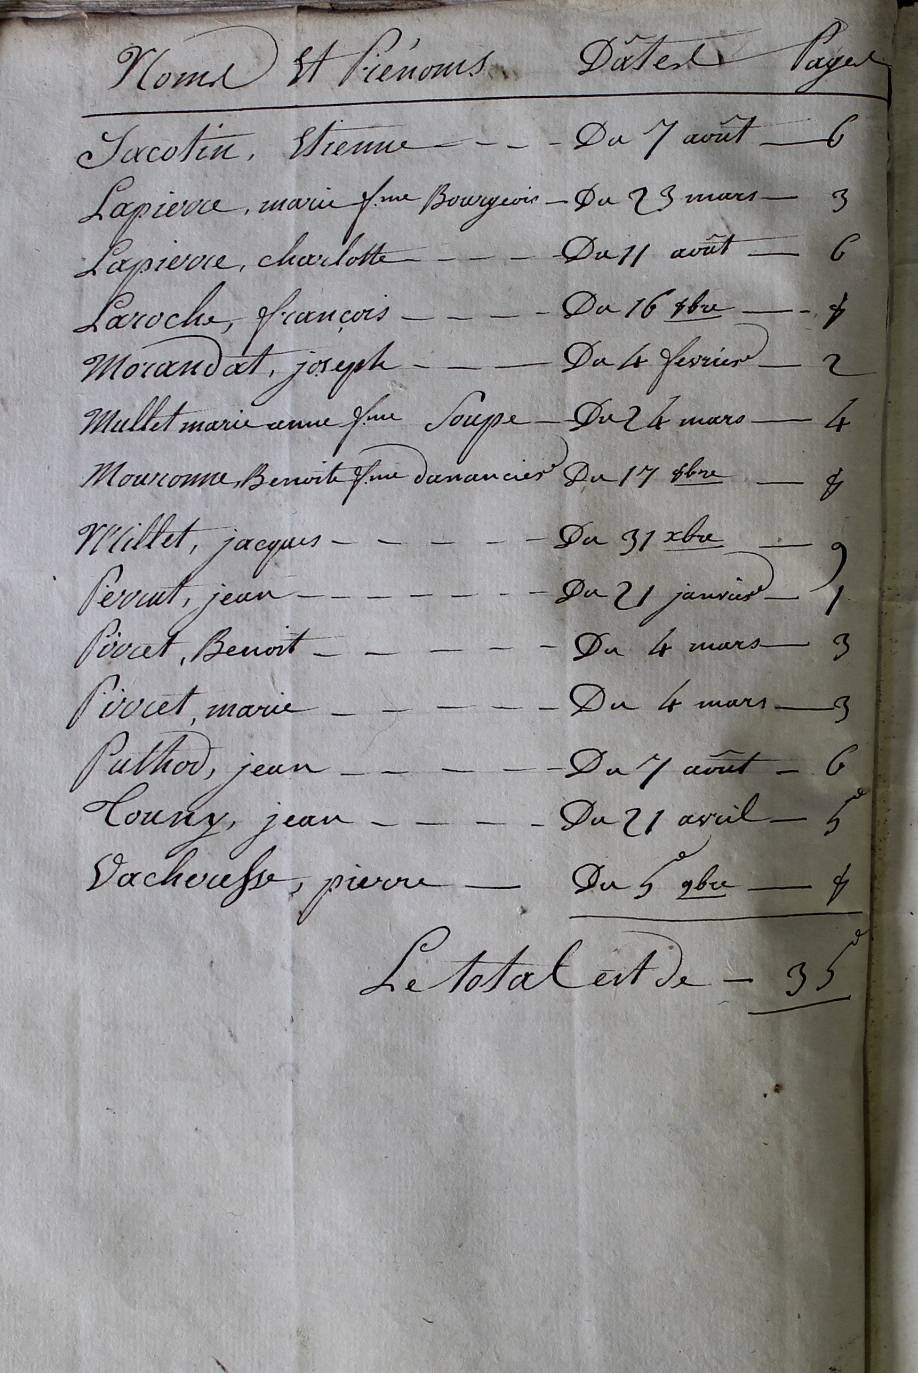 Noms Et Prénoms Dâtes Pages
Jacotin, Etienne - - - Du 7 août - 6
Lapierre, marie f.me Bourgeois - Du 23 mars - 3
Lapierre, charlotte - - - - Du 11 août - 6
Laroche, françois - - - - Du 16 8bre - 8
Morandat, joseph - - - Du 4 février - 2
Mullet marie anne f.me Soupe - Du 24 mars - 4
Benoite f.me danancier Du 17 8bre - 8
Millet, jacques - - - - - Du 31 xbre - 9
Perrat, jean - - - - - - - Du 21 janvier - 1
Pirret, Benoit - - - - - - Du 4 mars - 3
Pirret, marie - - - - - - Du 4 mars - 3
Puthod, jean - - - - - Du 7 août - 6
Touny, jean - - - - - Du 21 avril - 5
Vacheresse, pierre - Du 5 9bre - 8
Le total est de - 35